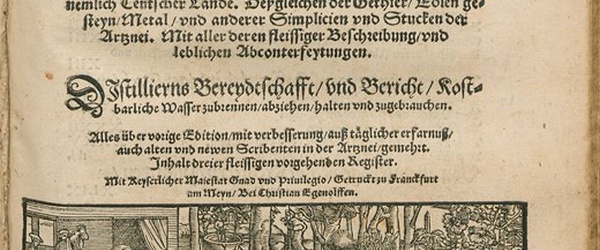 nemlich Teutscher Lande. Dergleichen der Gethier/ Edlen ge-
steyn/ Metal/ vnd anderer Simplicien vnd Stucken der
Artznei. Mit aller deren fleissiger Beschreibung/ vnd
leblichen Abconterfeytungen.
DIstillierns Bereydtschafft/ vnd Bericht/ Kost-
barliche Wasser zubrennen/ abziehen/ halten vnd zugebrauchen.
Alles über vorige Edition/ mit verbesserung/ auß täglicher erfarnuß/
auch alten vnd newen Scribenten in der Artznei/ gemehrt.
Inhalt dreier fleissigen vorgehenden Register.
Mit Keyserlicher Maiestat Gnad vnd Priuilegio/ Getruckt zu Franckfurt
am Meyn/ Bei Christian Egenolffen.